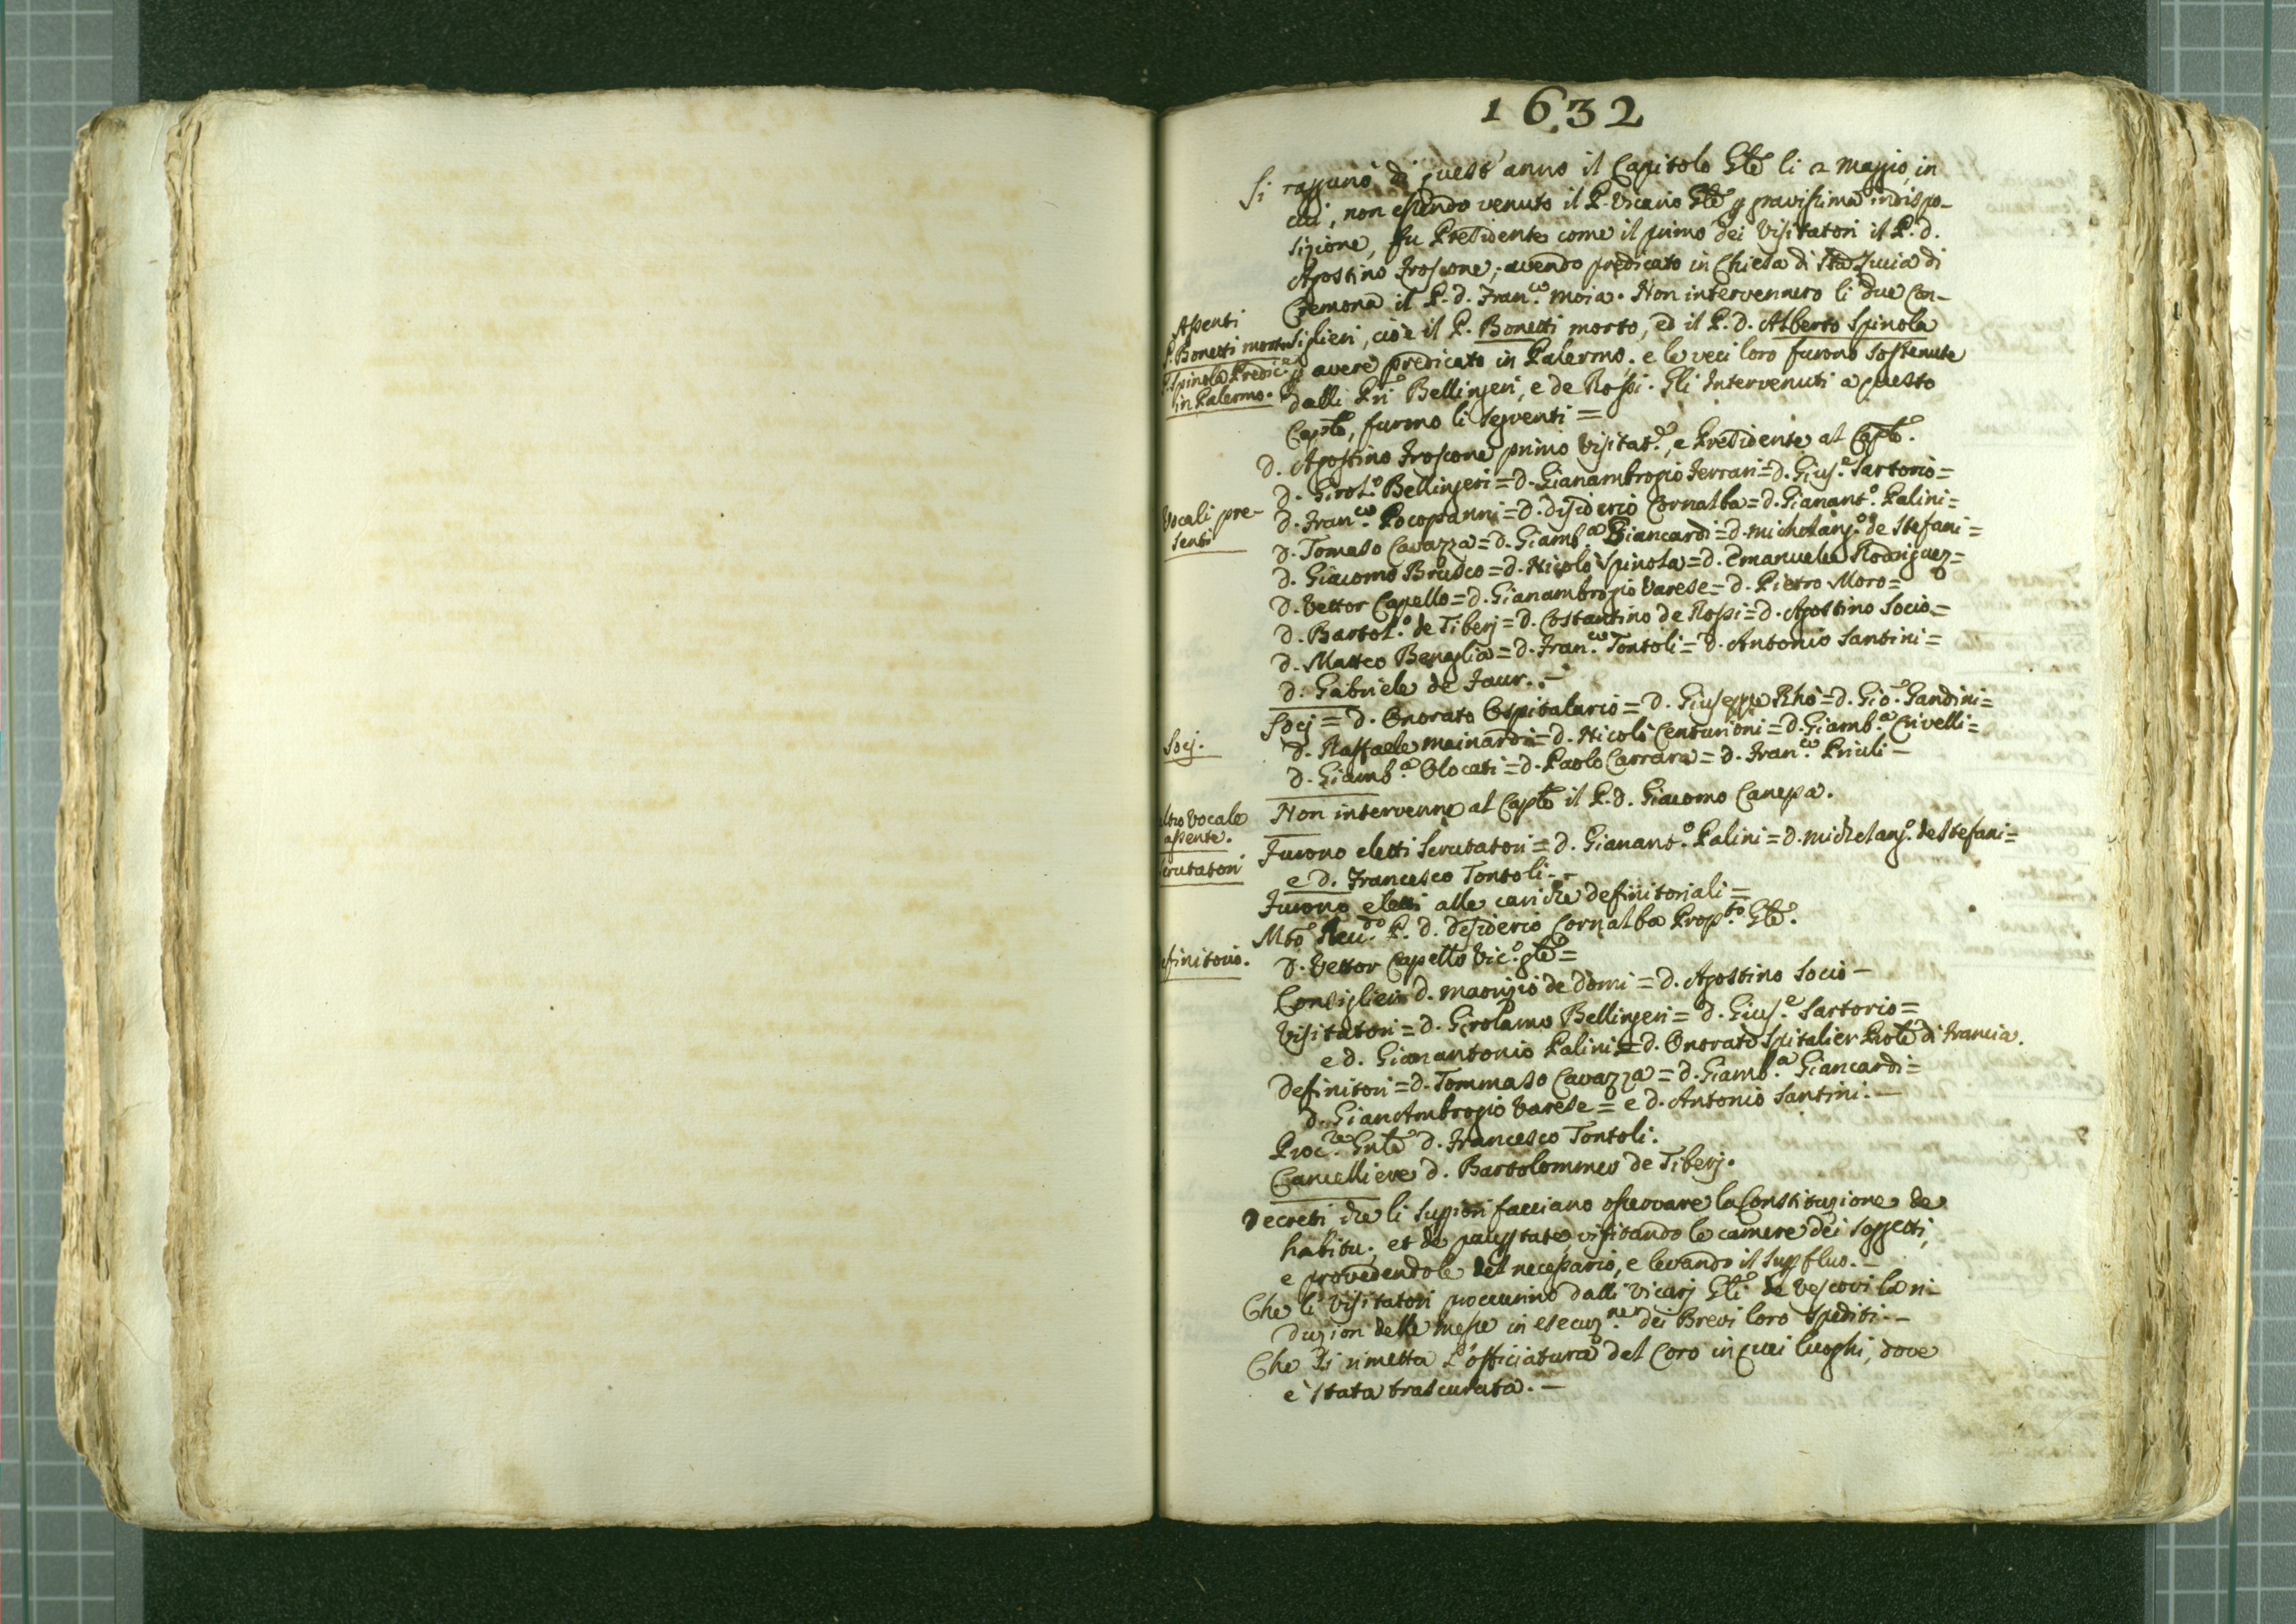 1632
Si raggunò di quest'anno il Capitolo Gñle li 2 Maggio, in
cui, non essendo venuto il P. Vicario Gñle p gravissima indispo-
sizione, fu Presidente come il primo dei Visitatori il P. d.
Agostino Froscone; avendo predicato in Chiesa di Sta Lucia di
Cremona il P. d. Fran.co Moia. Non intervennero li due Con-
Assenti
P. Bonetti morto
P. Spinola Predic.re
in Palermo.
siglieri, cioè il P. Bonetti morto, ed il P. d. Alberto Spinola
p avere predicato in Palermo. e le veci loro furono sostenute
dalli Pri Bellingeri, e de Rossi. Gli Intervenuti a questo
Caplo, furono li seguenti =
d. Agostino Froscone primo Visitat.e, e Presidente al Caplo.
d. Girol.o Bellingeri = d. Gianambrogio Ferrari = d. Gius.e Sartorio =
Vocali pre-
senti
d. Fran.co Pocopanni = d. Disiderio Cornalba = d. Gianant.o Palini =
d. Tomaso Cavazza = d. Giamb.a Giancardi = d. Michelang.o de Stefani =
d. Giacomo Brusco = d. Nicolò Spinola = d. Emanuele Rodriguez =
d. Vettor Capello = d. Gianambrogio Varese = d. Pietro Moro =
d. Bartol.o de Tiberj = d. Costantino de Rossi = d. Agostino Socio =
d. Matteo Benaglia = d. Fran.co Tontoli = d. Antonio Santini =
d. Gabriele de Faur. -
Socj.
Socj = d. Onorato Ospitalario = d. Giuseppe Rhò = d. Gio. Gandini =
d. Raffaele Mainardi = d. Nicolò Centurioni = d. Giamb.a Crivelli =
d. Giamb.a Olocati = d. Paolo Carrara = d. Fran.co Priuli -
altro Vocale
assente.
Non intervenne al Caplo il P. d. Giacomo Canepa.
Scrutatori
Furono eletti Scrutatori = d. Gianant.o Palini = d. Michelang.o de Stefani =
e d. Francesco Tontoli. -
Furono eletti alle cariche definitoriali =
Mto Reu.do P. d. Desiderio Cornalba Prop.to Gñle.
Definitorio.
d. Vettor Capello Vic.o gñle =
Consiglieri d. Maorizio de Domi = d. Agostino Socio -
Visitatori = d. Girolamo Bellingeri = d. Gius.e Sartorio =
e d. Gianantonio Palini = d. Onorato Spitalier Prole di Francia.
Definitori = d. Tommaso Cavazza = d. Giamb.a Giancardi =
d. GianAmbrogio Varese = e d. Antonio Santini. -
Proc.re Gnle d. Francesco Tontoli.
Cancelliere d. Bartolommeo de Tiberj.
Decreti, che li Suppiori facciano osservare la Constituzione de
habitu, et de pauptate, visitando le camere dei soggetti,
e provedendole del necessario, e levando il supfluo. -
Che li Visitatori proccurino dalli Vicarj Gñli de Vescovi la ri-
duzion delle messe in esecuz.ne dei Brevi loro spediti. -
Che si rimetta l'officiatura del Coro in quei luoghi, dove
è stata trascurata. -